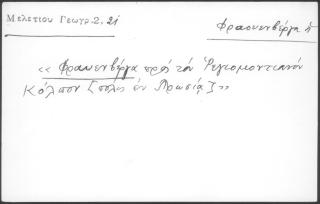 Μελετίου Γεωγρ.2, 21
Φραουενβέργα ἡ
« Φραουενβέργα πρὸς τὸν Ῥεγιομοντιανὸν
Κόλπον [πόλις ἐν Πρωσίᾳ] »